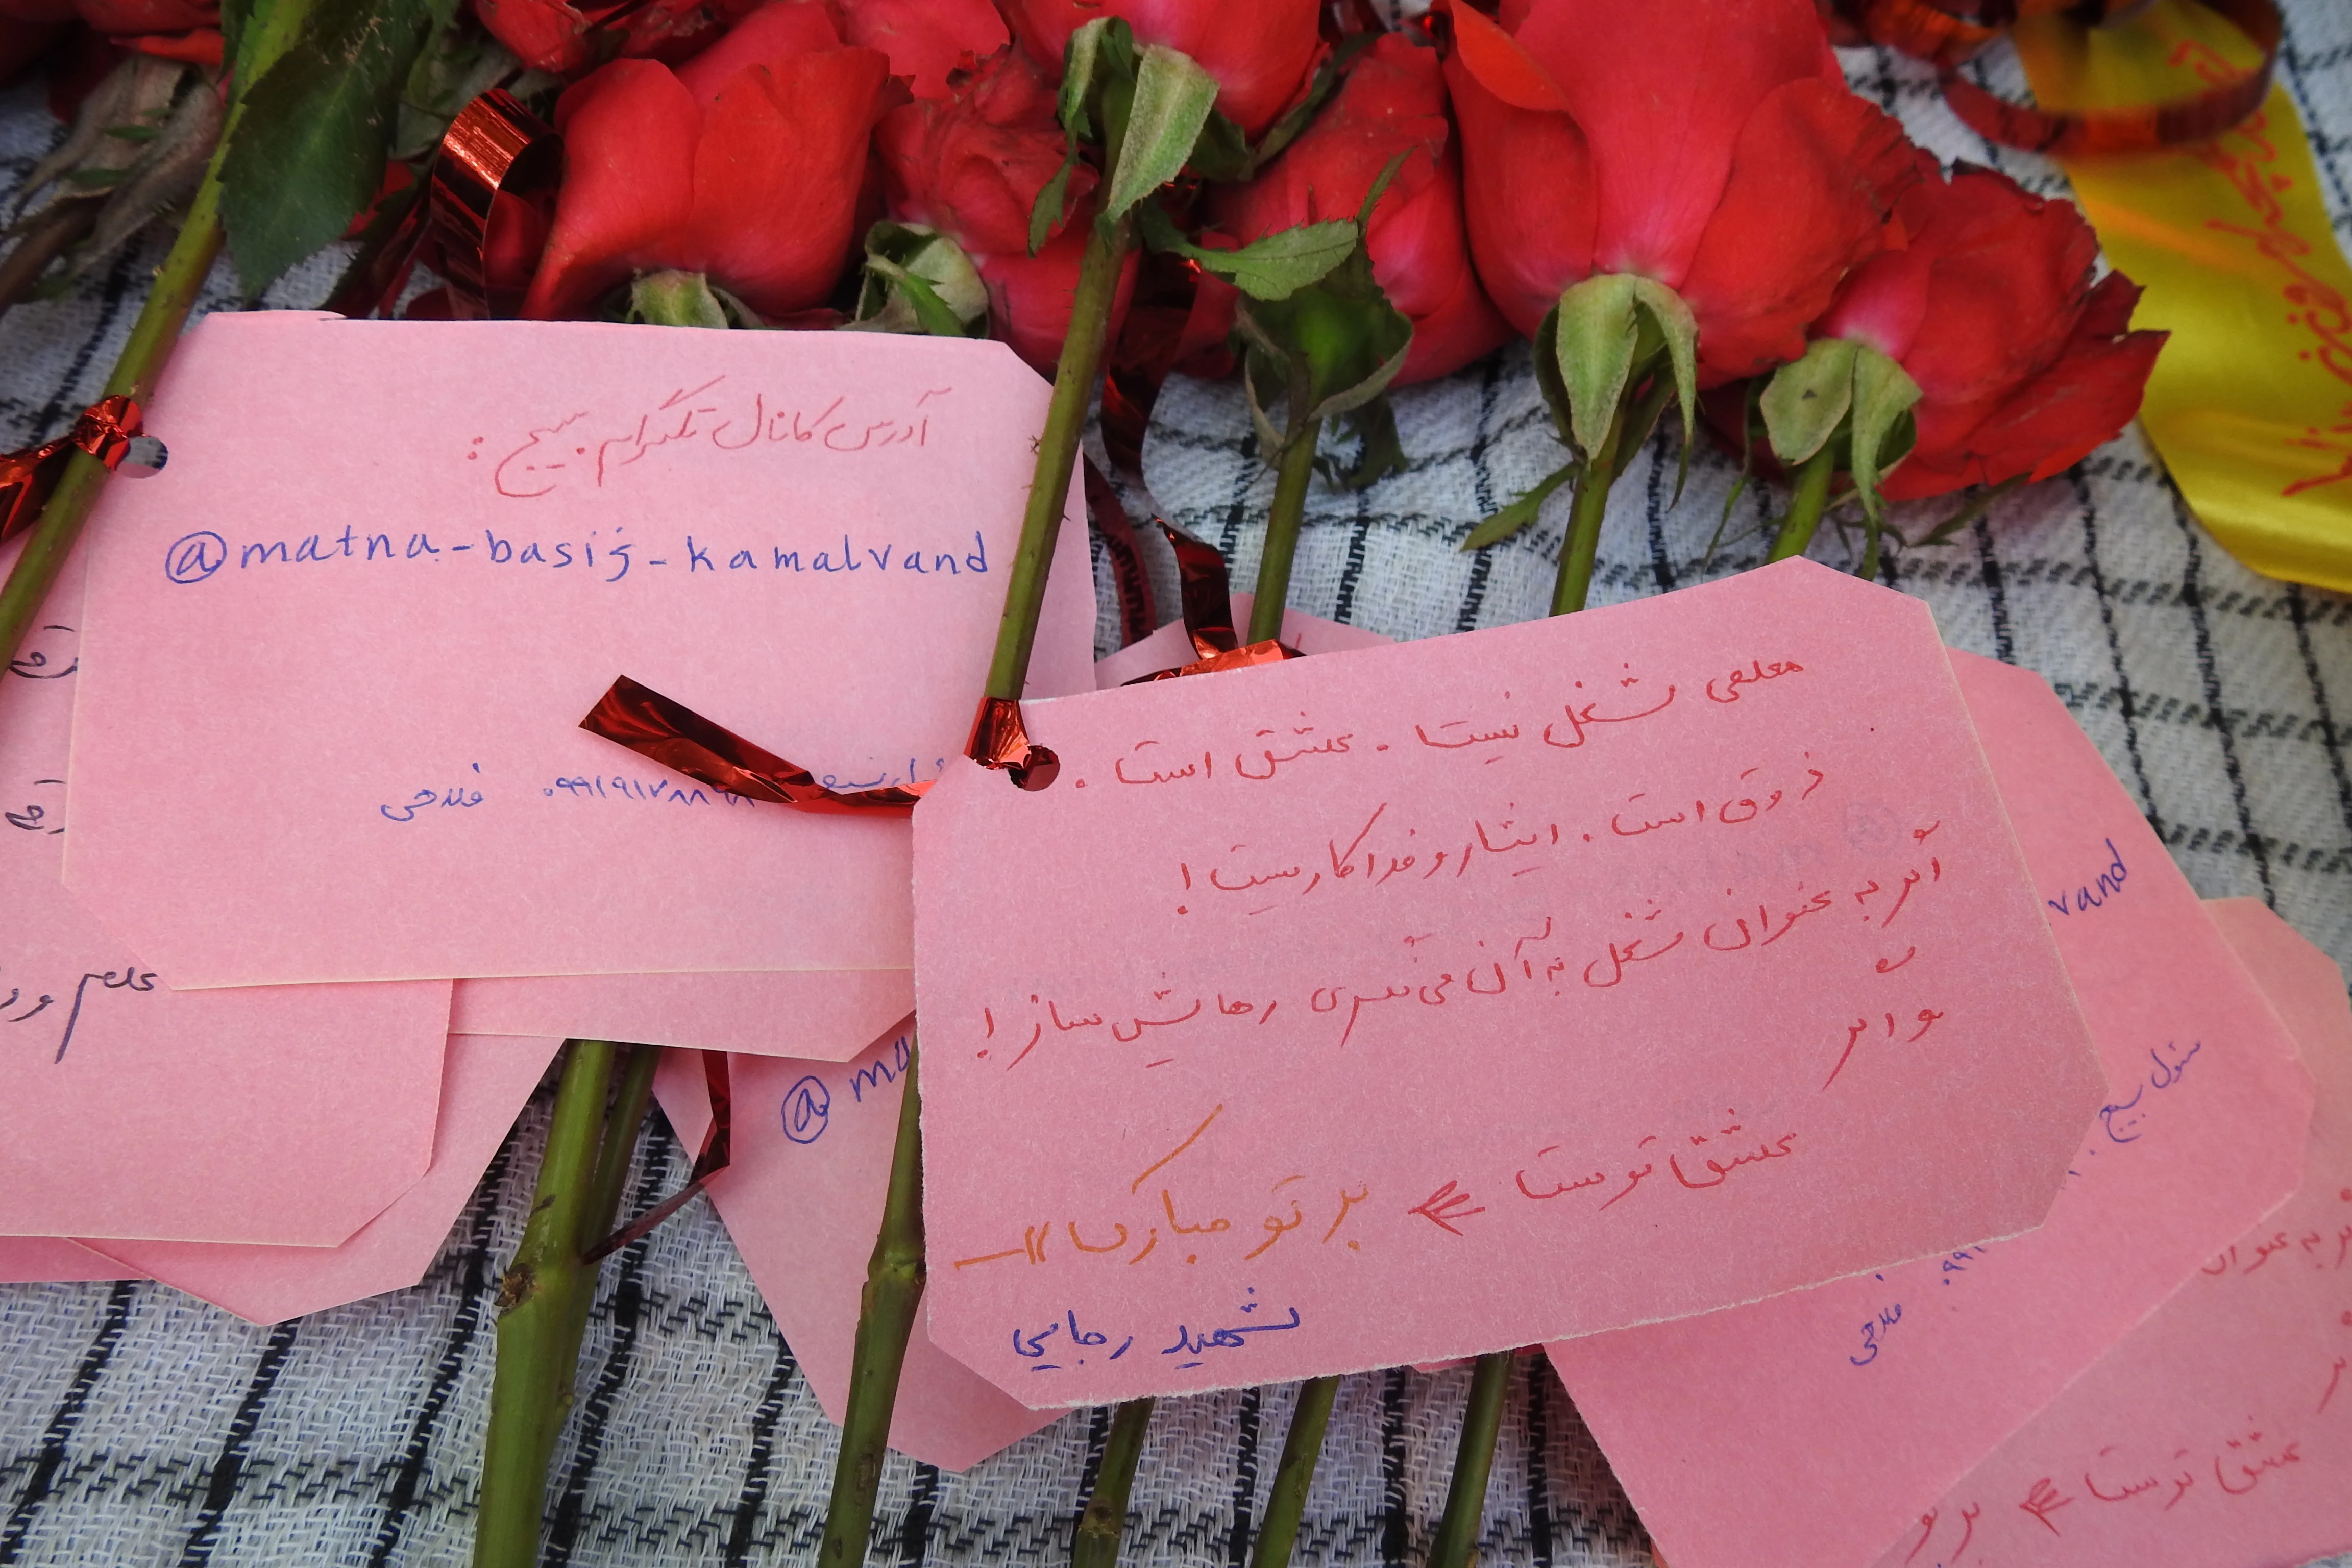 آدرس کانال تلگرام بسیج :
@matna-basij-kamalvand
فلاحی
معلمی شغل نیست . عشق است .
ذوق است . ایثار و فداکاریست !
اگر به عنوان شغل به آن می‌نگری رهایش ساز !
و اگر
عشق توست بر تو مبارک
شهید رجایی
@ ma
vand
مسئول بسیج
فلاحی
به عنوان
عشق توست بر تو